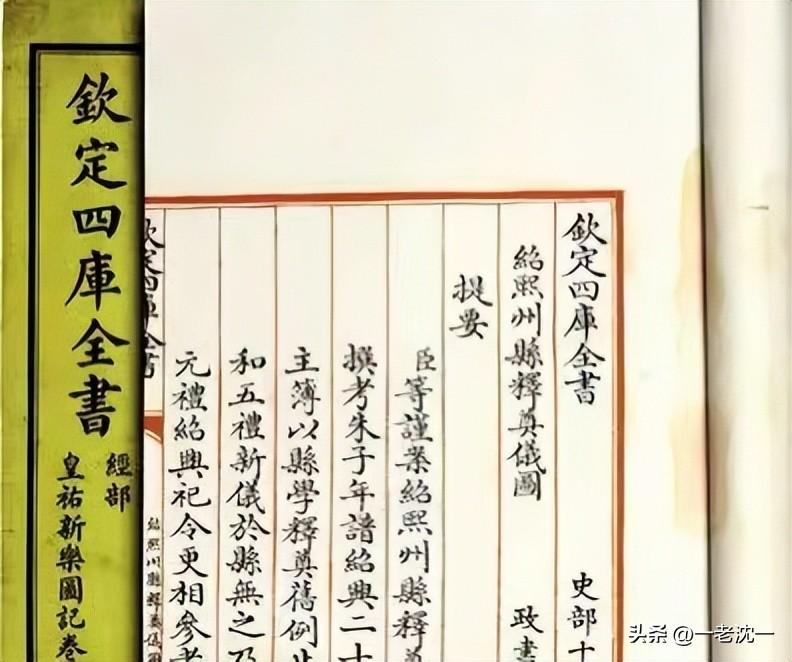 欽定四庫全書
經部
皇祐新樂圖記卷
欽定四庫全書
史部十
紹熙州縣釋奠儀圖
政書
提要
臣等謹案紹熙州縣釋奠
撰考朱子年譜紹興二十
主簿以縣學釋奠舊例止
和五禮新儀於縣無之乃
元禮紹興祀令更相參考
欽定四庫全書
紹熙州縣釋奠儀圖
头条 @一老沈一